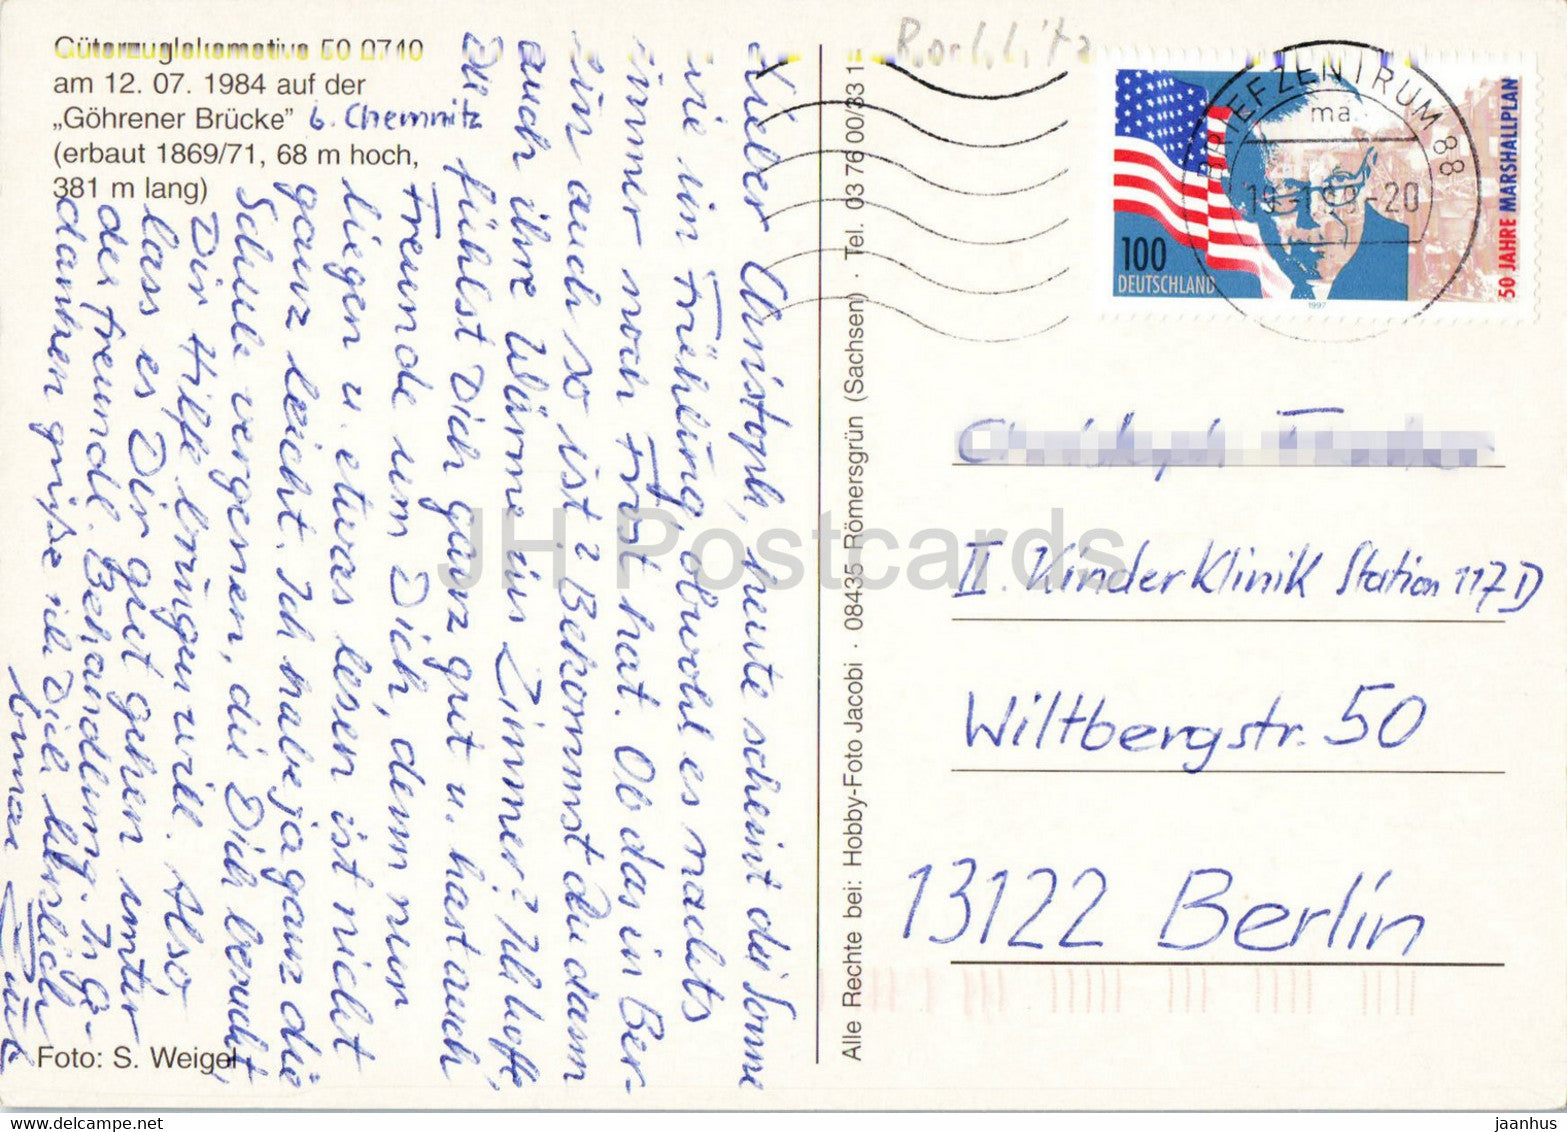 Güterzuglokomotive 50 0710
am 12. 07. 1984 auf der
„Göhrener Brücke" b. Chemnitz
(erbaut 1869/71, 68 m hoch,
381 m lang)
Lieber Christoph, heute scheint die Sonne
wie im Frühling, obwohl es nachts
immer noch Frost hat. Ob das in Ber-
lin auch so ist? Bekommst du dann
auch ihre Wärme im Zimmer? Ich hoffe,
Du fühlst Dich ganz gut u. hast auch
Freunde um Dich, denn nur
liegen u. etwas lesen ist nicht
ganz leicht. Ich habe ja ganz die
Schule vergessen, die Dich besucht,
Dir Hilfe bringen will. Also
lass es Dir gut gehen unter
der freundl. Behandlung. In Ge-
danken grüße ich Dich herzlich
Foto: S. Weigel
Alle Rechte bei: Hobby-Foto Jacobi · 08435 Römersgrün (Sachsen) · Tel. 03 76 00/33 1
Rochlitz
BRIEFZENTRUM 88
ma
19.-1.98-20
100
DEUTSCHLAND
1997
50 JAHRE MARSHALLPLAN
Christoph
II. Kinderklinik Station 117D
Wiltbergstr. 50
13122 Berlin
JH Postcards
jaanhus
www.delcampe.net